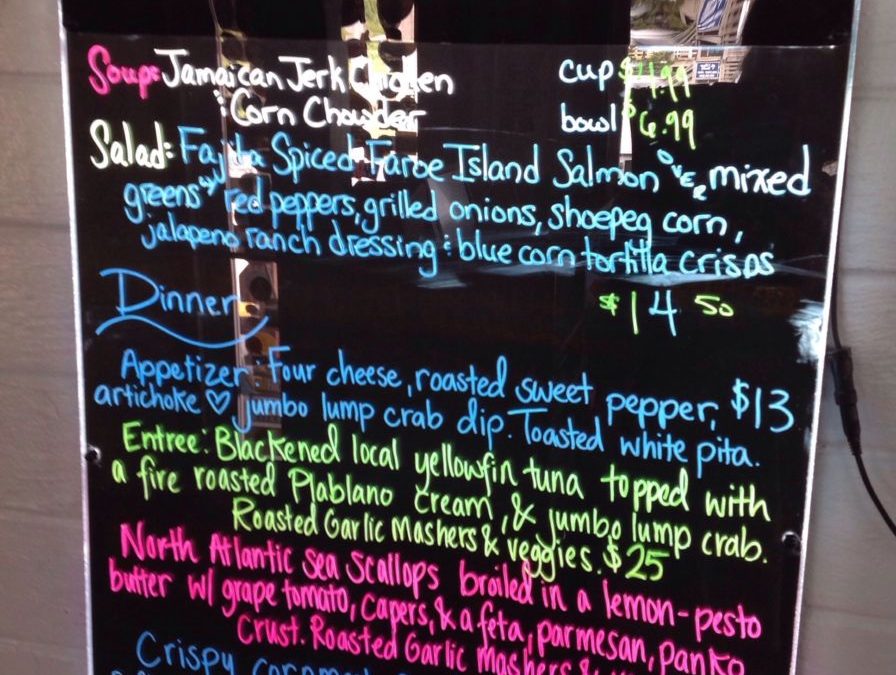 Soup: Jamaican Jerk Chicken cup $4.99
& Corn Chowder bowl $6.99
Salad: Fajita Spiced Faroe Island Salmon OVER mixed
greens w/ red peppers, grilled onions, shoepeg corn,
jalapeno ranch dressing & blue corn tortilla crisps
Dinner $14 50
Appetizer: Four cheese, roasted sweet pepper, $13
artichoke ♡ jumbo lump crab dip. Toasted white pita.
Entree: Blackened local yellowfin tuna topped with
a fire roasted Plablano cream, & jumbo lump crab.
Roasted Garlic Mashers & veggies. $25
North Atlantic sea scallops broiled in a lemon-pesto
butter w/ grape tomato, capers, & a feta, parmesan, panko
Crust. Roasted Garlic Mashers &
Crispy